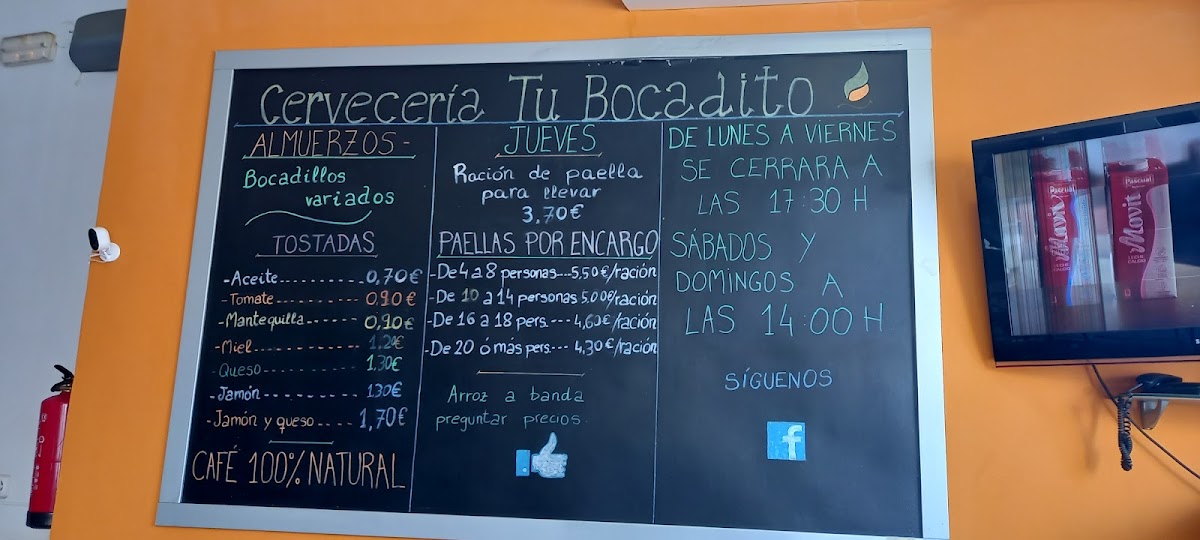 Cervecería Tu Bocadito
ALMUERZOS -
Bocadillos
variados
TOSTADAS
-Aceite.......... 0,70€
-Tomate ........ 0,90€
-Mantequilla ....... 0,90€
-Miel................ 1,20€
-Queso........... 1,30€
-Jamón........... 130€
-Jamón y queso ..... 1,70€
CAFÉ 100% NATURAL
JUEVES
Ración de paella
para llevar
3,70€
PAELLAS POR ENCARGO
-De 4 a 8 personas---5,50€/ración
-De 10 a 14 personas 5,00€/ración
-De 16 a 18 pers. --- 4,60€/ración
-De 20 ó más pers.--- 4,30€/ración
Arroz a banda
preguntar precios.
DE LUNES A VIERNES
SE CERRARA A
LAS 17:30 H
SÁBADOS Y
DOMINGOS A
LAS 14:00 H
SÍGUENOS
f
Pascual
Movit
Pascual
Movit